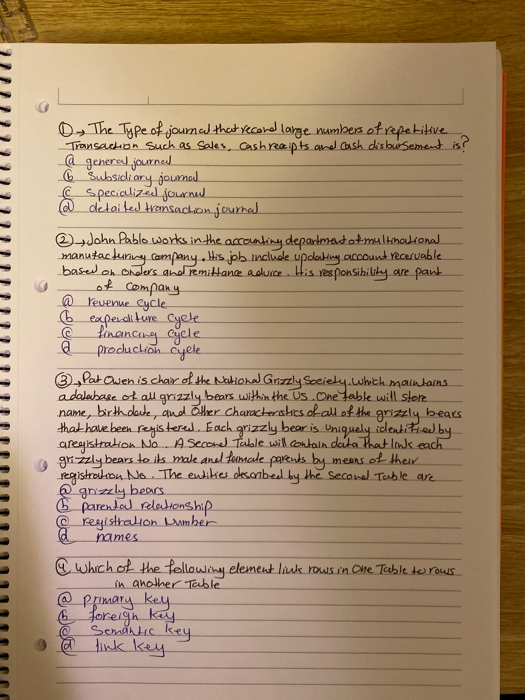 ① → The Type of journal that record large numbers of repetitive
Transaction such as Sales, Cash receipts and Cash disbursement is?
ⓐ general journal
ⓑ Subsidiary journal
ⓒ Specialized journal
ⓓ detailed transaction journal
② → John Pablo works in the accounting department of multinational
manufacturing company. His job include updating account receivable
based on orders and remittance advice. His responsibility are part
of company
ⓐ revenue cycle
ⓑ expenditure cycle
ⓒ financing cycle
ⓓ production cycle
③ → Pat Owen is chair of the National Grizzly Society. Which maintains
a database of all grizzly bears within the US. One table will store
name, birthdate, and Other Characteristics of all of the grizzly bears
that have been registered. Each grizzly bear is Uniquely identified by
a registration No. A Second Table will contain data that links each
grizzly bears to its male and female parents by means of their
registration No. The entities described by the Second Table are
ⓐ grizzly bears
ⓑ parental relationship
ⓒ registration Number
ⓓ names
④ Which of the following element link rows in One Table to rows
in another Table
ⓐ primary key
ⓑ foreign key
ⓒ Semantic key
ⓓ link key